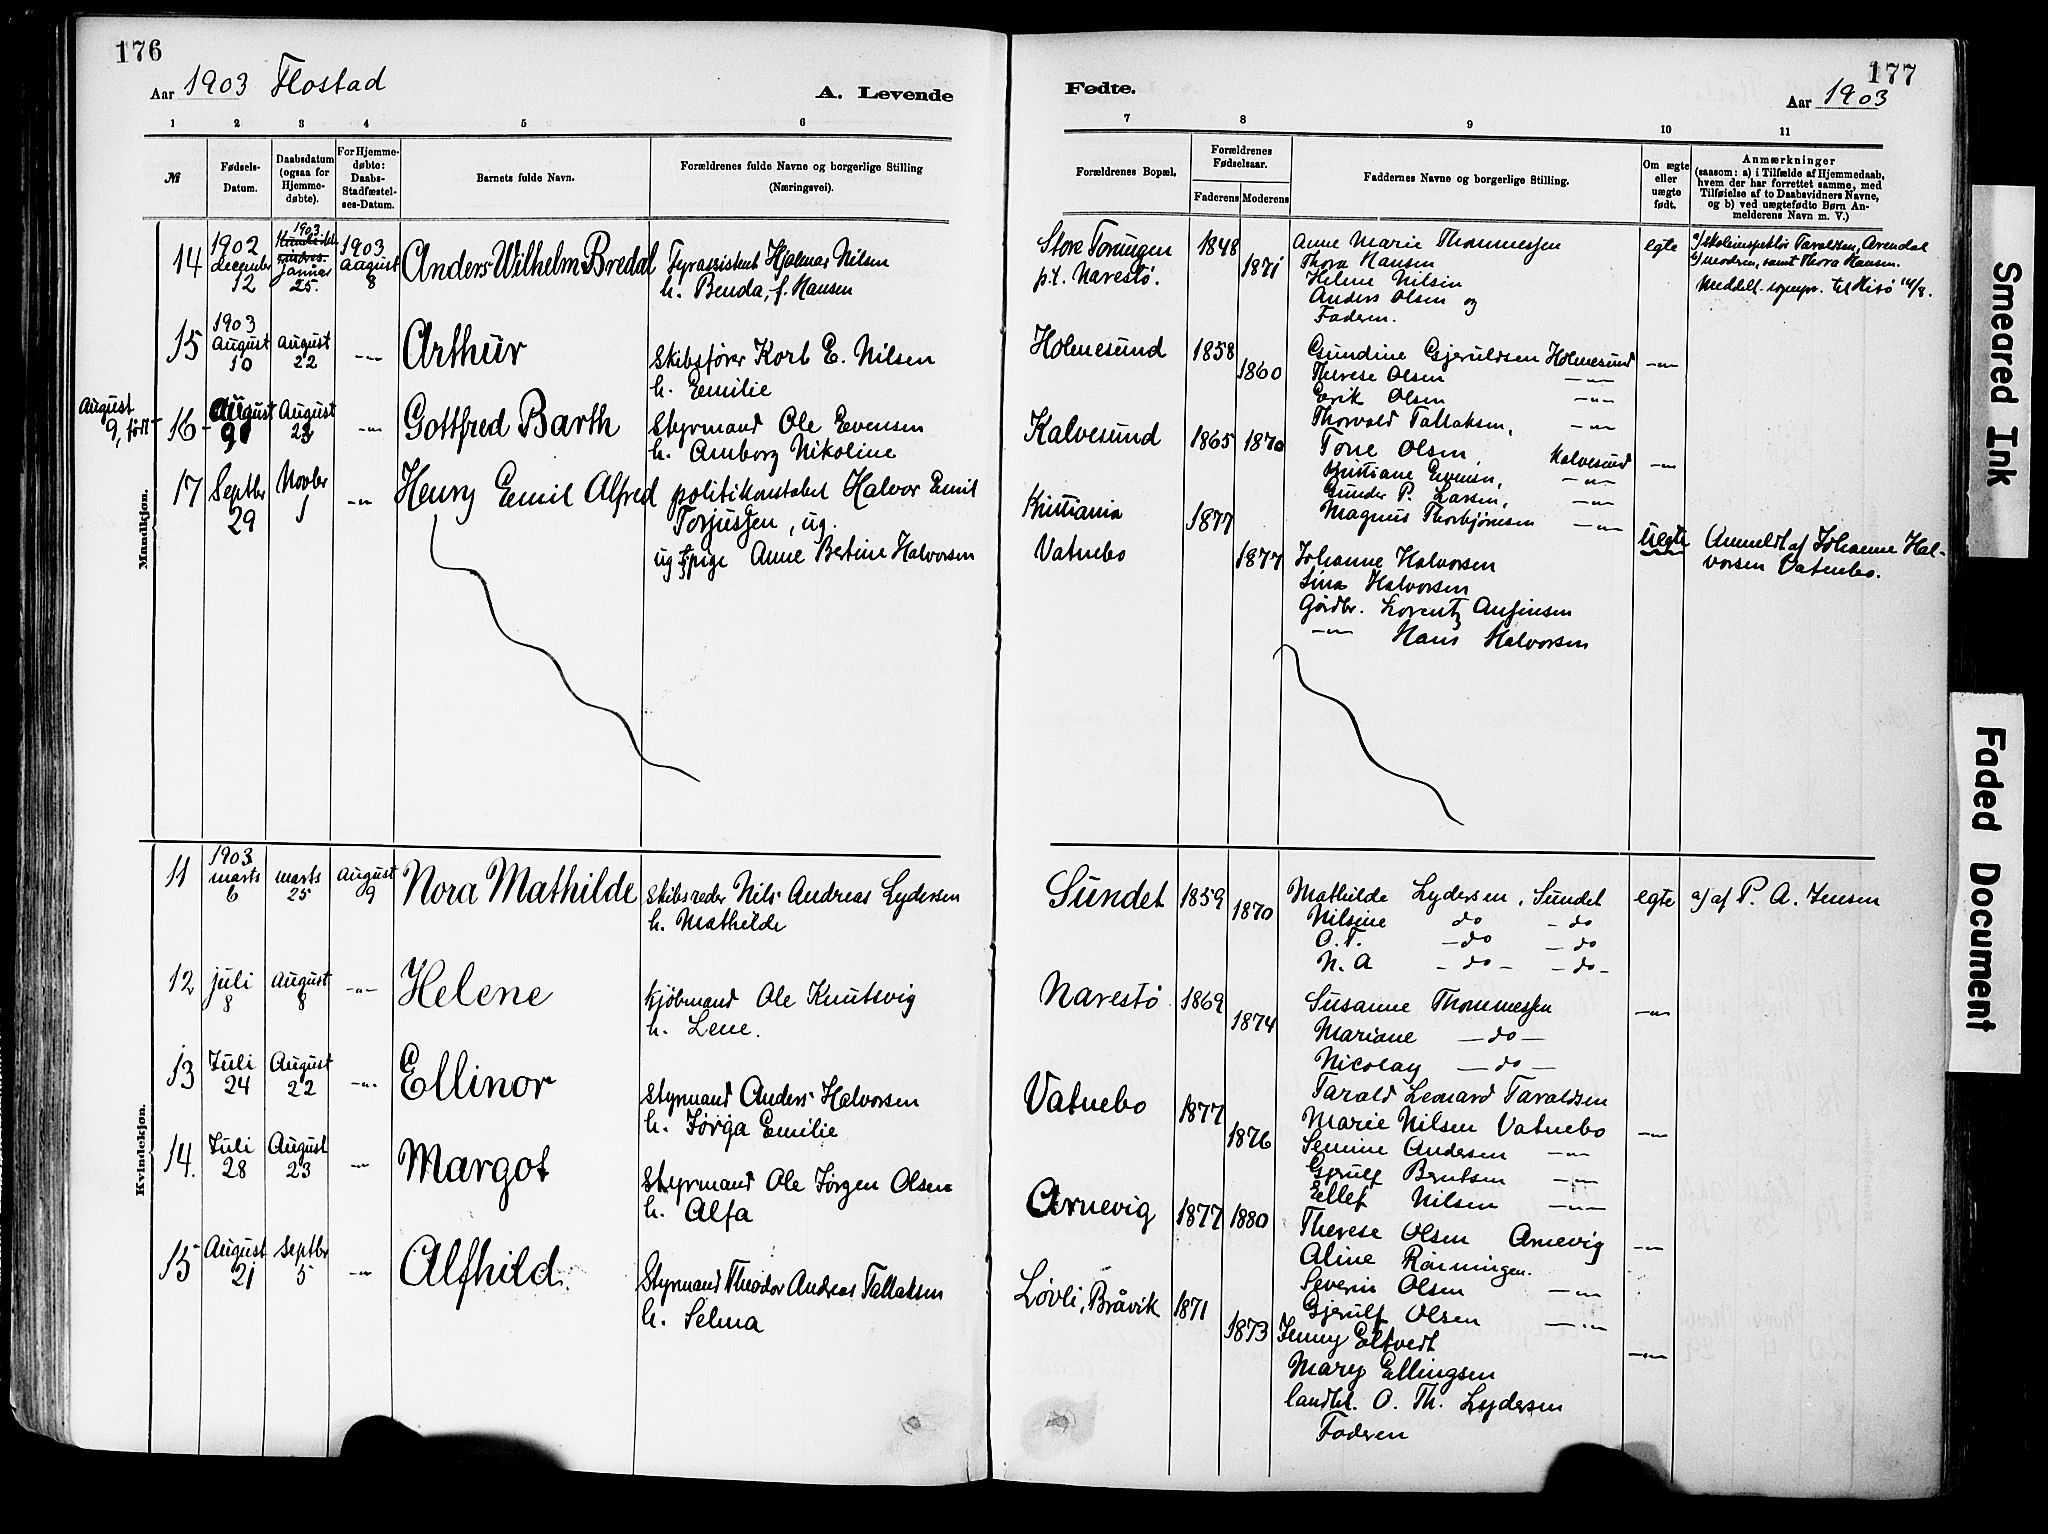 176
Aar 1903 Flostad
A. Levende
1 2 3 4 5 6
№
Fødsels-Datum.
Daabsdatum (ogsaa for Hjemme-døbte).
For Hjemme-døbte: Daabs-Stadfæstel-ses-Datum.
Barnets fulde Navn.
Forældrenes fulde Navne og borgerlige Stilling
(Næringsvei).
Mandkjøn.
14
1902
december
12
1903
Januar
25.
1903
August
8
Anders Wilhelm Bredal
Fyrassistent Hjalmar Nilsen
h. Benda, f. Hansen
15
1903
August
10
August
22
-"-
Arthur
Skibsfører Korl E. Nilsen
h. Emilie
August
9, født
16
August
9
August
23
-"-
Gottfred Barth
Styrmand Ole Evensen
h. Amborg Nikoline
17
Septbr
29
Novbr
1
-"-
Henry Emil Alfred
politikonstabel Halvor Emil
Torjussen, ug.
ug pige Anne Bertine Halvorsen
Kvindekjøn.
11
1903
marts
6
marts
25
August
9
Nora Mathilde
Skibsreder Nils Andreas Lydersen
h. Mathilde
12
juli
8
August
8
-"-
Helene
Kjøbmand Ole Knutsvig
h. Lene.
13
Juli
24
August
22
-"-
Ellinor
Styrmand Anders Halvorsen
h. Jørga Emilie
14.
Juli
28
August
23
-"-
Margot
Styrmand Ole Jørgen Olsen
h. Alfa
15
August
21
Septbr
5
-"-
Alfhild.
Styrmand Theodor Andreas Tallaksen
h. Selma
177
Fødte.
Aar 1903
7 8 9 10 11
Forældrenes Bopæl,
Forældrenes Fødselsaar.
Faderens Moderens
Faddernes Navne og borgerlige Stilling.
Om ægte eller uægte født.
Anmærkninger
(saasom: a) i Tilfælde af Hjemmedaab,
hvem der har forrettet samme, med
Tilføielse af to Daabsvidners Navne,
og b) ved uægtefødte Børn An-
melderens Navn m. V.)
Store Torungen
p.t. Narestø.
1848
1871
Anne Marie Thommessen
Thora Hansen
Helene Nilsen
Anders Olsen og
Faderen.
egte
a/ skoleinspektør Taraldsen, Arendal
b/ modren, samt Thora Hansen.
Meddelt sognepr. til Hisø 14/8.
Holmesund
1858
1860
Gundine Gjeruldsen Holmesund
Therese Olsen -"-
Erik Olsen -"-
Thorvald Tallaksen, -"-
-"-
Kalvesund
1865 1870
Tone Olsen, Kalvesund
Kristiane Evensen, -"-
Gunder P. Larsen, -"-
Magnus Thorbjørnsen -"-
-"-
Kristiania
1877
Vatnebo
1877
Johanne Halvorsen
Lina Halvorsen
Gårdbr. Lorentz Anfinsen
-"- Hans Halvorsen
uegte
Anmeldt af Johanne Hal-
vorsen Vatnebo.
Sundet
1859
1870
Mathilde Lydersen, Sundet
Nilsine do - do
O.T. - do - do
N. A - do - - do -
egte
a/ af P. A. Jensen
Narestø
1869
1874
Susanne Thommessen
Mariane - do -
Nicolay - do -
Tarald Leonard Taraldsen
-"-
Vatnebo
1877
1876
Marie Nilsen Vatnebo
Semine Andersen -"-
Gjerulf Berntsen -"-
Ellef Nilsen -"-
-"-
Arnevig
1877 1880
Therese Olsen Arnevig
Aline Rønningen.
Severin Olsen -"-
Gjerulf Olsen -"-
-"-
Løvli, Bråvik
1871
1873
Jenny Eltvedt
Mary Ellingsen
landhl. O. Th. Lydersen
Faderen
-"-
Smeared Ink
Faded Document